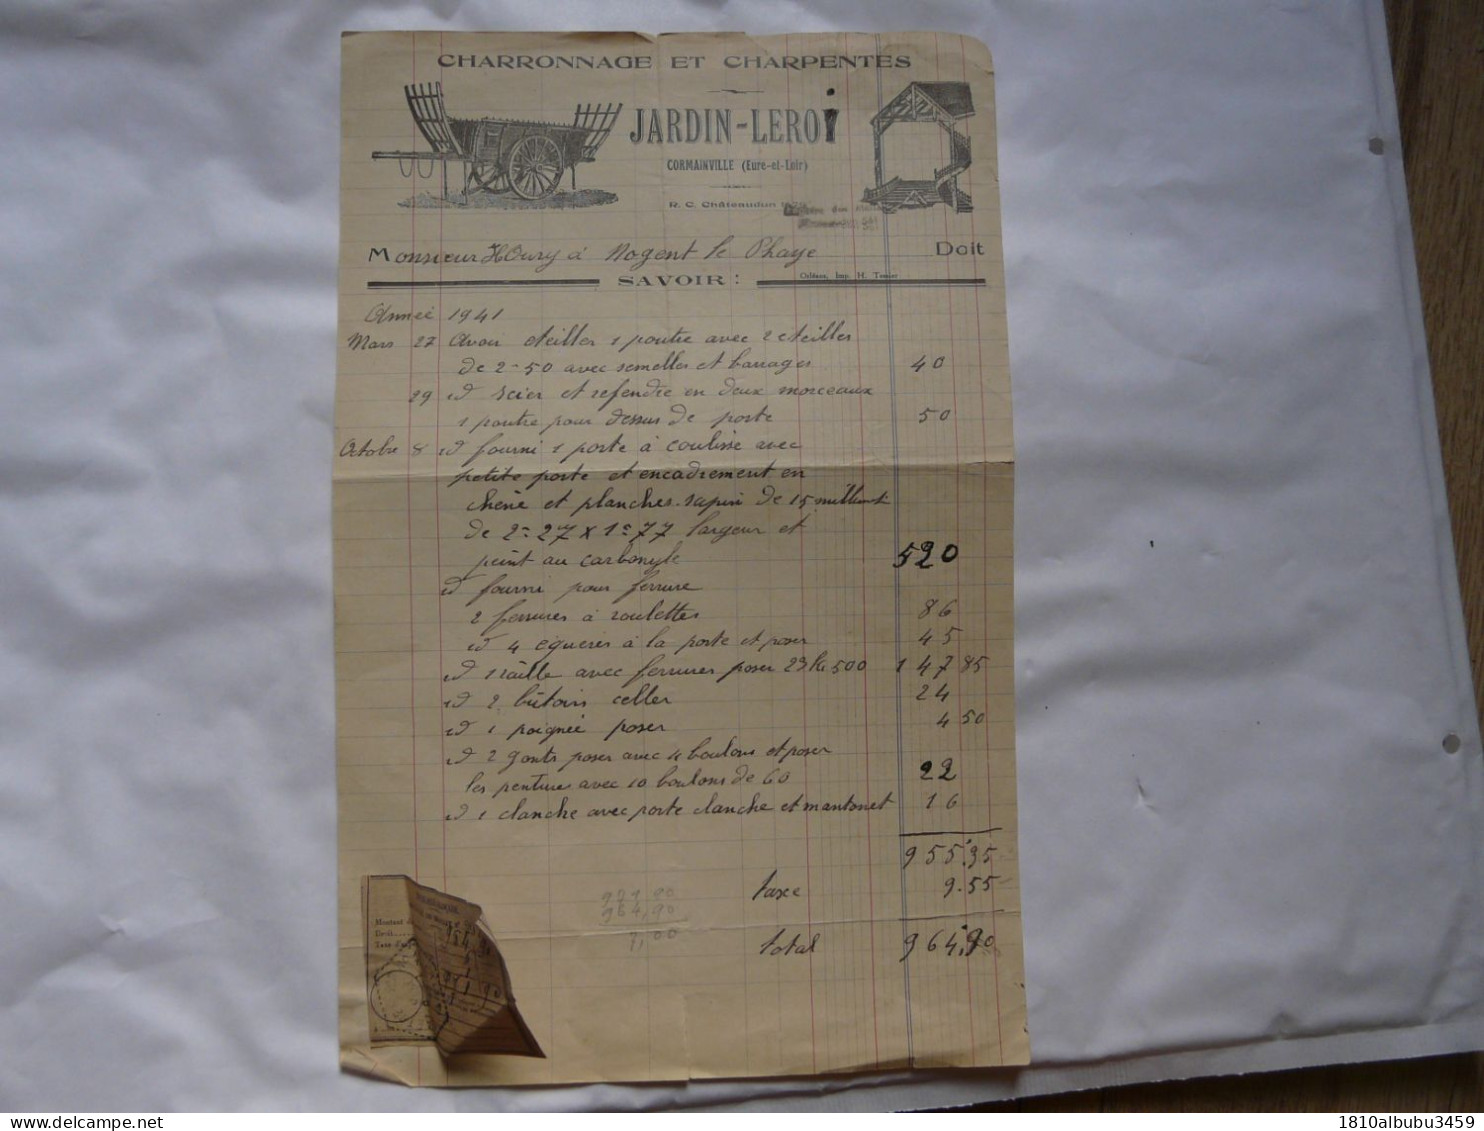 CHARRONNAGE ET CHARPENTES
JARDIN-LEROY
CORMAINVILLE (Eure-et-Loir)
R. C. Châteaudun
Monsieur Houry à Nogent le Phaye Doit
SAVOIR :
Orléans, Imp. H. Tessier
Année 1941
Mars 27 Avoir eteiller 1 poutre avec 2 eteilles
de 2-50 avec semelles et barrages 40
29 d scier et refendre en deux morceaux
1 poutre pour dessus de porte 50
Octobre 8 d fourni 1 porte à coulisse avec
petite porte et encadrement en
chêne et planches sapin de 15 millimt
de 2-27 x 1-77 largeur et
peint au carbonyle 520
d fourni pour ferrure
2 ferrures à roulettes 86
d 4 équeres à la porte et poser 45
d 1 raille avec ferrures poser 23 k 500 147 85
d 2 butoirs celler 24
d 1 poignée poser 4 50
d 2 gonts poser avec 4 boulons et poser
les penture avec 10 boulons de 60 22
d 1 clanche avec porte clanche et mantonet 16
955,35
taxe 9.55
total 964,90
964,90
7,00
Montant
Droit
1810albubu3459